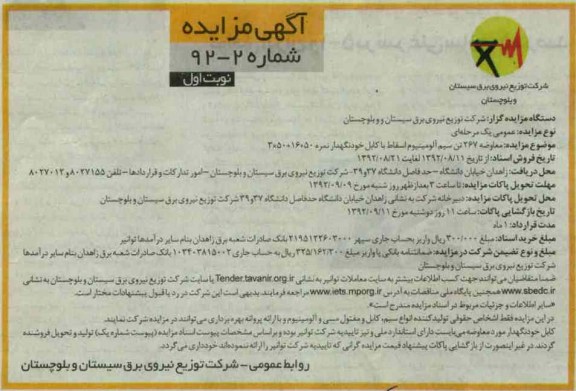 آگهی مزایده
شماره ۲-۹۲
نوبت اول
شرکت توزیع نیروی برق سیستان
و بلوچستان
دستگاه مزایده گزار: شرکت توزیع نیروی برق سیستان و بلوچستان
نوع مزایده: عمومی یک مرحله‌ای
موضوع مزایده: معاوضه ۲۶۷ تن سیم آلومینیوم اسقاط با کابل خودنگهدار نمره
تاریخ فروش اسناد: از تاریخ ۱۳۹۲/۰۸/۱۱ لغایت ۱۳۹۲/۰۸/۲۱
محل دریافت: زاهدان خیابان دانشگاه – حد فاصل دانشگاه ۳۷ و ۳۹ – شرکت توزیع نیروی برق سیستان و بلوچستان – امور تدارکات و قراردادها – تلفن ۸۰۲۷۱۵۵ و ۸۰۲۷۰۱۲
مهلت تحویل پاکات مزایده: تا ساعت ۳ بعدازظهر روز شنبه مورخ ۱۳۹۲/۰۹/۰۹
محل تحویل پاکات مزایده: دبیرخانه شرکت به نشانی زاهدان خیابان دانشگاه حدفاصل دانشگاه ۳۷ و ۳۹ شرکت توزیع نیروی برق سیستان و بلوچستان
تاریخ بازگشایی پاکات: ساعت ۱۱ روز دوشنبه مورخ ۱۳۹۲/۰۹/۱۱
مدت قرارداد: ۱ ماه
مبلغ خرید اسناد: مبلغ ۳۰۰/۰۰۰ ریال واریز بحساب جاری سپهر ۲۱۹۵۱۲۲۶۰۳۰۰۰ بانک صادرات شعبه برق زاهدان بنام سایر درآمدها توانیر
مبلغ و نوع تضمین شرکت در مزایده: ضمانتنامه بانکی یا واریز مبلغ ۳۲۵/۱۶۲/۳۰۰ ریال به حساب جاری ۱۰۳۴۰۳۸۱۵۰۰۲ بانک صادرات شعبه برق زاهدان بنام سایر درآمدها
شرکت توزیع نیروی برق سیستان و بلوچستان
ضمنا متقاضیان می‌توانند جهت کسب اطلاعات بیشتر به سایت معاملات توانیر به نشانی Tender.tavanir.org.ir یا سایت شرکت توزیع نیروی برق سیستان و بلوچستان به نشانی
www.sbedc.ir همچنین پایگاه ملی مناقصات به آدرس www.iets.mporg.ir مراجعه فرمایند. بدیهی است این شرکت در رد یا قبول پیشنهادات مختار است.
«سایر اطلاعات و جزئیات مربوط در اسناد مزایده مندرج است»
در این مزایده فقط اشخاص حقوقی تولیدکننده انواع سیم، کابل و مفتول مسی و آلومینیوم و با ارائه پروانه بهره برداری می‌توانند در مزایده شرکت نمایند.
کابل خودنگهدار مورد معاوضه می‌بایست دارای استاندارد ملی و نیز تاییدیه شرکت توانیر بوده و براساس مشخصات پیوست اسناد مزایده (پیوست شماره یک) تولید و تحویل فروشنده
گردند. در غیر اینصورت از بازگشایی پاکات پیشنهاد قیمت مزایده گرانی که تاییدیه شرکت توانیر را ارائه ننموده‌اند خودداری می‌گردد.
روابط عمومی – شرکت توزیع نیروی برق سیستان و بلوچستان